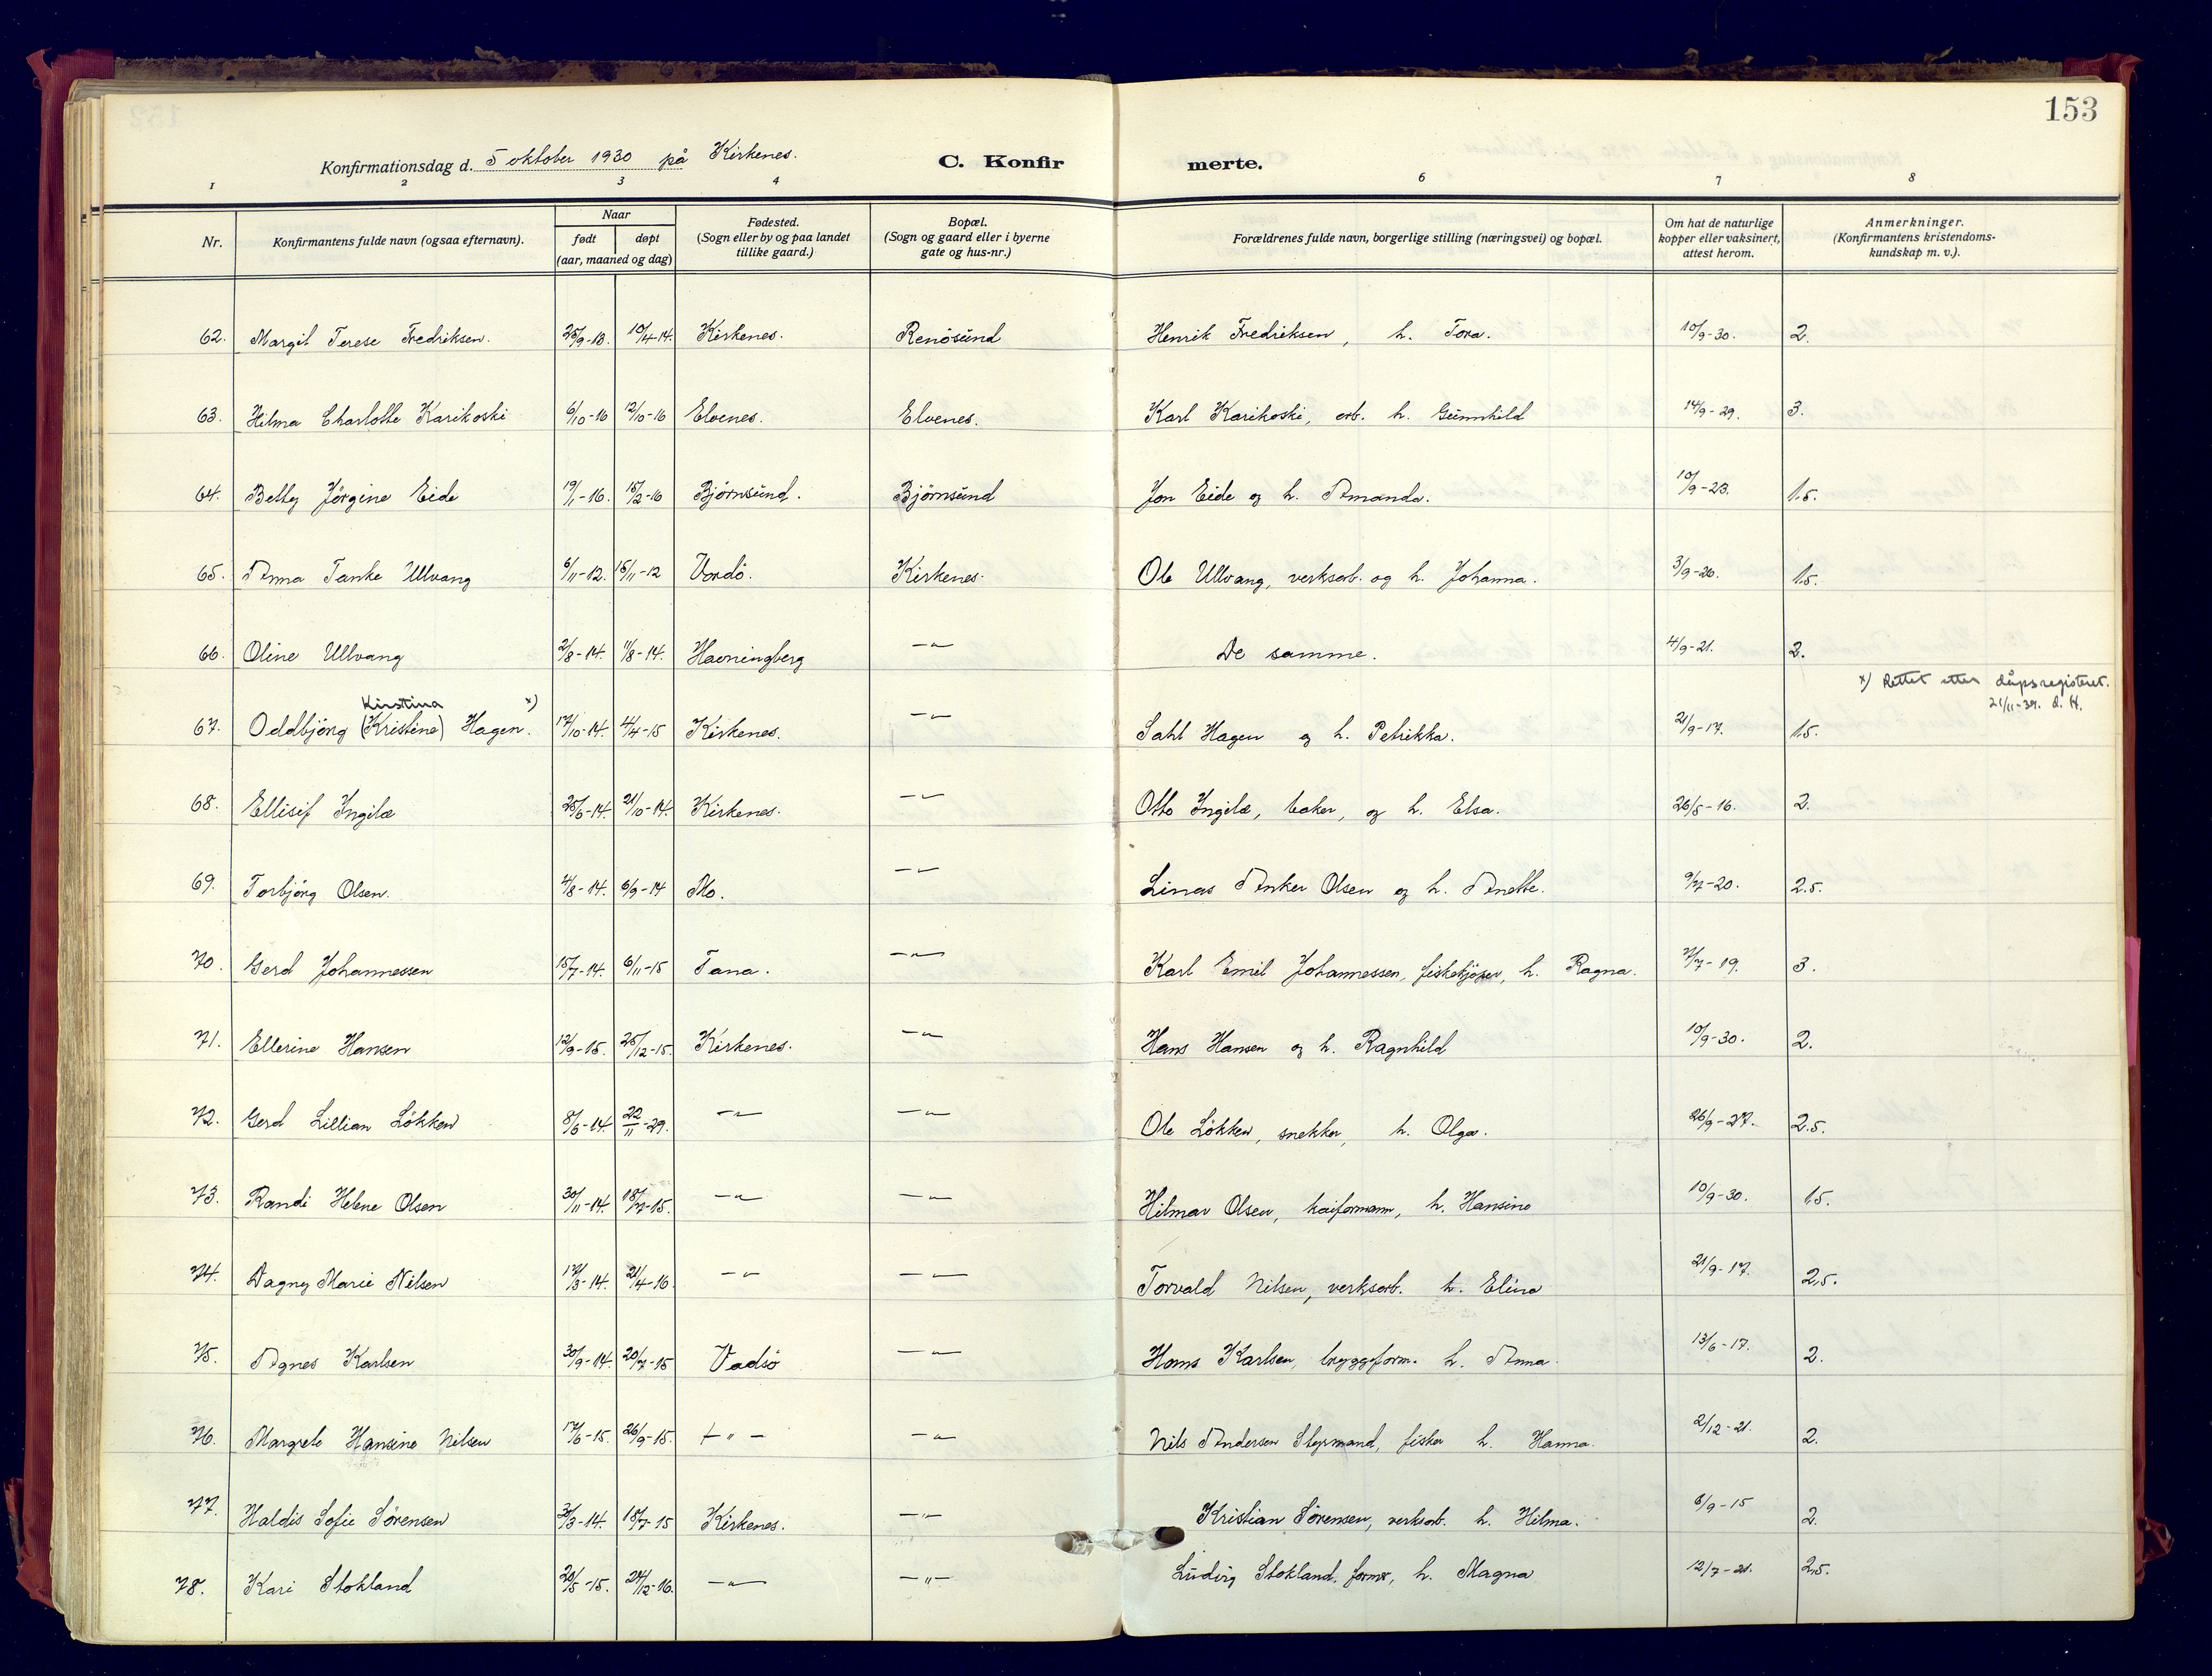 153
Konfirmationsdag d. 5 oktober 1930 på Kirkenes. C. Konfir merte.
1 2 3 4 6 7 8
Nr. Konfirmantens fulde navn (ogsaa efternavn). Naar født døpt (aar, maaned og dag) Fødested. (Sogn eller by og paa landet tillike gaard.) Bopæl. (Sogn og gaard eller i byerne gate og hus-nr.) Forældrenes fulde navn, borgerlige stilling (næringsvei) og bopæl. Om hat de naturlige kopper eller vaksinert, attest herom. Anmerkninger. (Konfirmantens kristendoms-kundskap m. v.).
62. Margit Terese Fredriksen. 25/9-13. 10/4-14. Kirkenes. Renøsund Henrik Fredriksen, h. Tora. 10/9-30. 2.
63. Hilma Charlotte Karikoski 6/10-16 12/10-16 Elvenes. Elvenes. Karl Karikoski, arb. h. Gunnhild 14/9-29. 3.
64. Betty Jörgine Eide 19/1-16. 15/2-16 Björnsund. Björnsund Jon Eide og h. Amanda. 10/9-23. 1.5.
65. Anna Tanke Ullvang 6/11-12. 15/11-12 Vardö. Kirkenes. Ole Ullvang, verksarb. og h. Johanna. 3/9-20. 1.5.
66. Oline Ullvang 2/8-14. 11/8-14. Havningberg -"- De samme. 4/9-21. 2.
x) Rettet etter dåpsregisteret.
21/11-39. d. H.
Kirstina x)
67. Oddbjörg (Kristine) Hagen. 17/10-14. 4/4-15 Kirkenes. -"- Sahl Hagen og h. Petrikka. 21/9-17. 1.5.
68. Ellisif Ingilæ 25/6-14. 21/10-14. Kirkenes. -"- Otto Ingilæ, baker, og h. Elsa. 26/5-16. 2.
69. Torbjörg Olsen. 4/8-14. 6/9-14 Mo. -"- Linas Anker Olsen og h. Anette. 9/7-20. 2.5.
70. Gerd Johannessen 15/7-14. 6/11-15 Tana. -"- Karl Emil Johannessen, fiskekjöper, h. Ragna. 7/7-19. 3.
71. Ellerine Hansen 12/9-15. 25/12-15. Kirkenes. -"- Hans Hansen og h. Ragnhild 10/9-30. 2.
72. Gerd Lillian Lökken 8/6-14. 22/11-29. -"- -"- Ole Lökken, snekker, h. Olga. 26/9-27. 2.5.
73. Randi Helene Olsen 30/11-14. 18/7-15. -"- -"- Hilmar Olsen, kaiformann, h. Hansine 10/9-30. 1.5.
74. Dagny Marie Nilsen 17/3-14. 21/4-16. -"- -"- Torvald Nilsen, verksarb. h. Elina 21/9-17. 2,5.
75. Agnes Karlsen 30/9-14. 20/7-15 Vadsö -"- Hans Karlsen, bryggeform. h. Anna. 13/6-17. 2.
76. Margrete Hansine Nilsen 17/6-15. 26/9-15. -"- -"- Nils Andersen Styrmand, fisker h. Hanna. 2/12-21. 2.
77. Haldis Sofie Sörensen 3/3-14. 18/7-15 Kirkenes. -"- Kristian Sörensen, verksarb. h. Hilma. 6/9-15 2.
78. Kari Stokland 20/5-15. 24/12-16. -"- -"- Ludvig Stokland, former, h. Magna 12/7-21. 2.5.